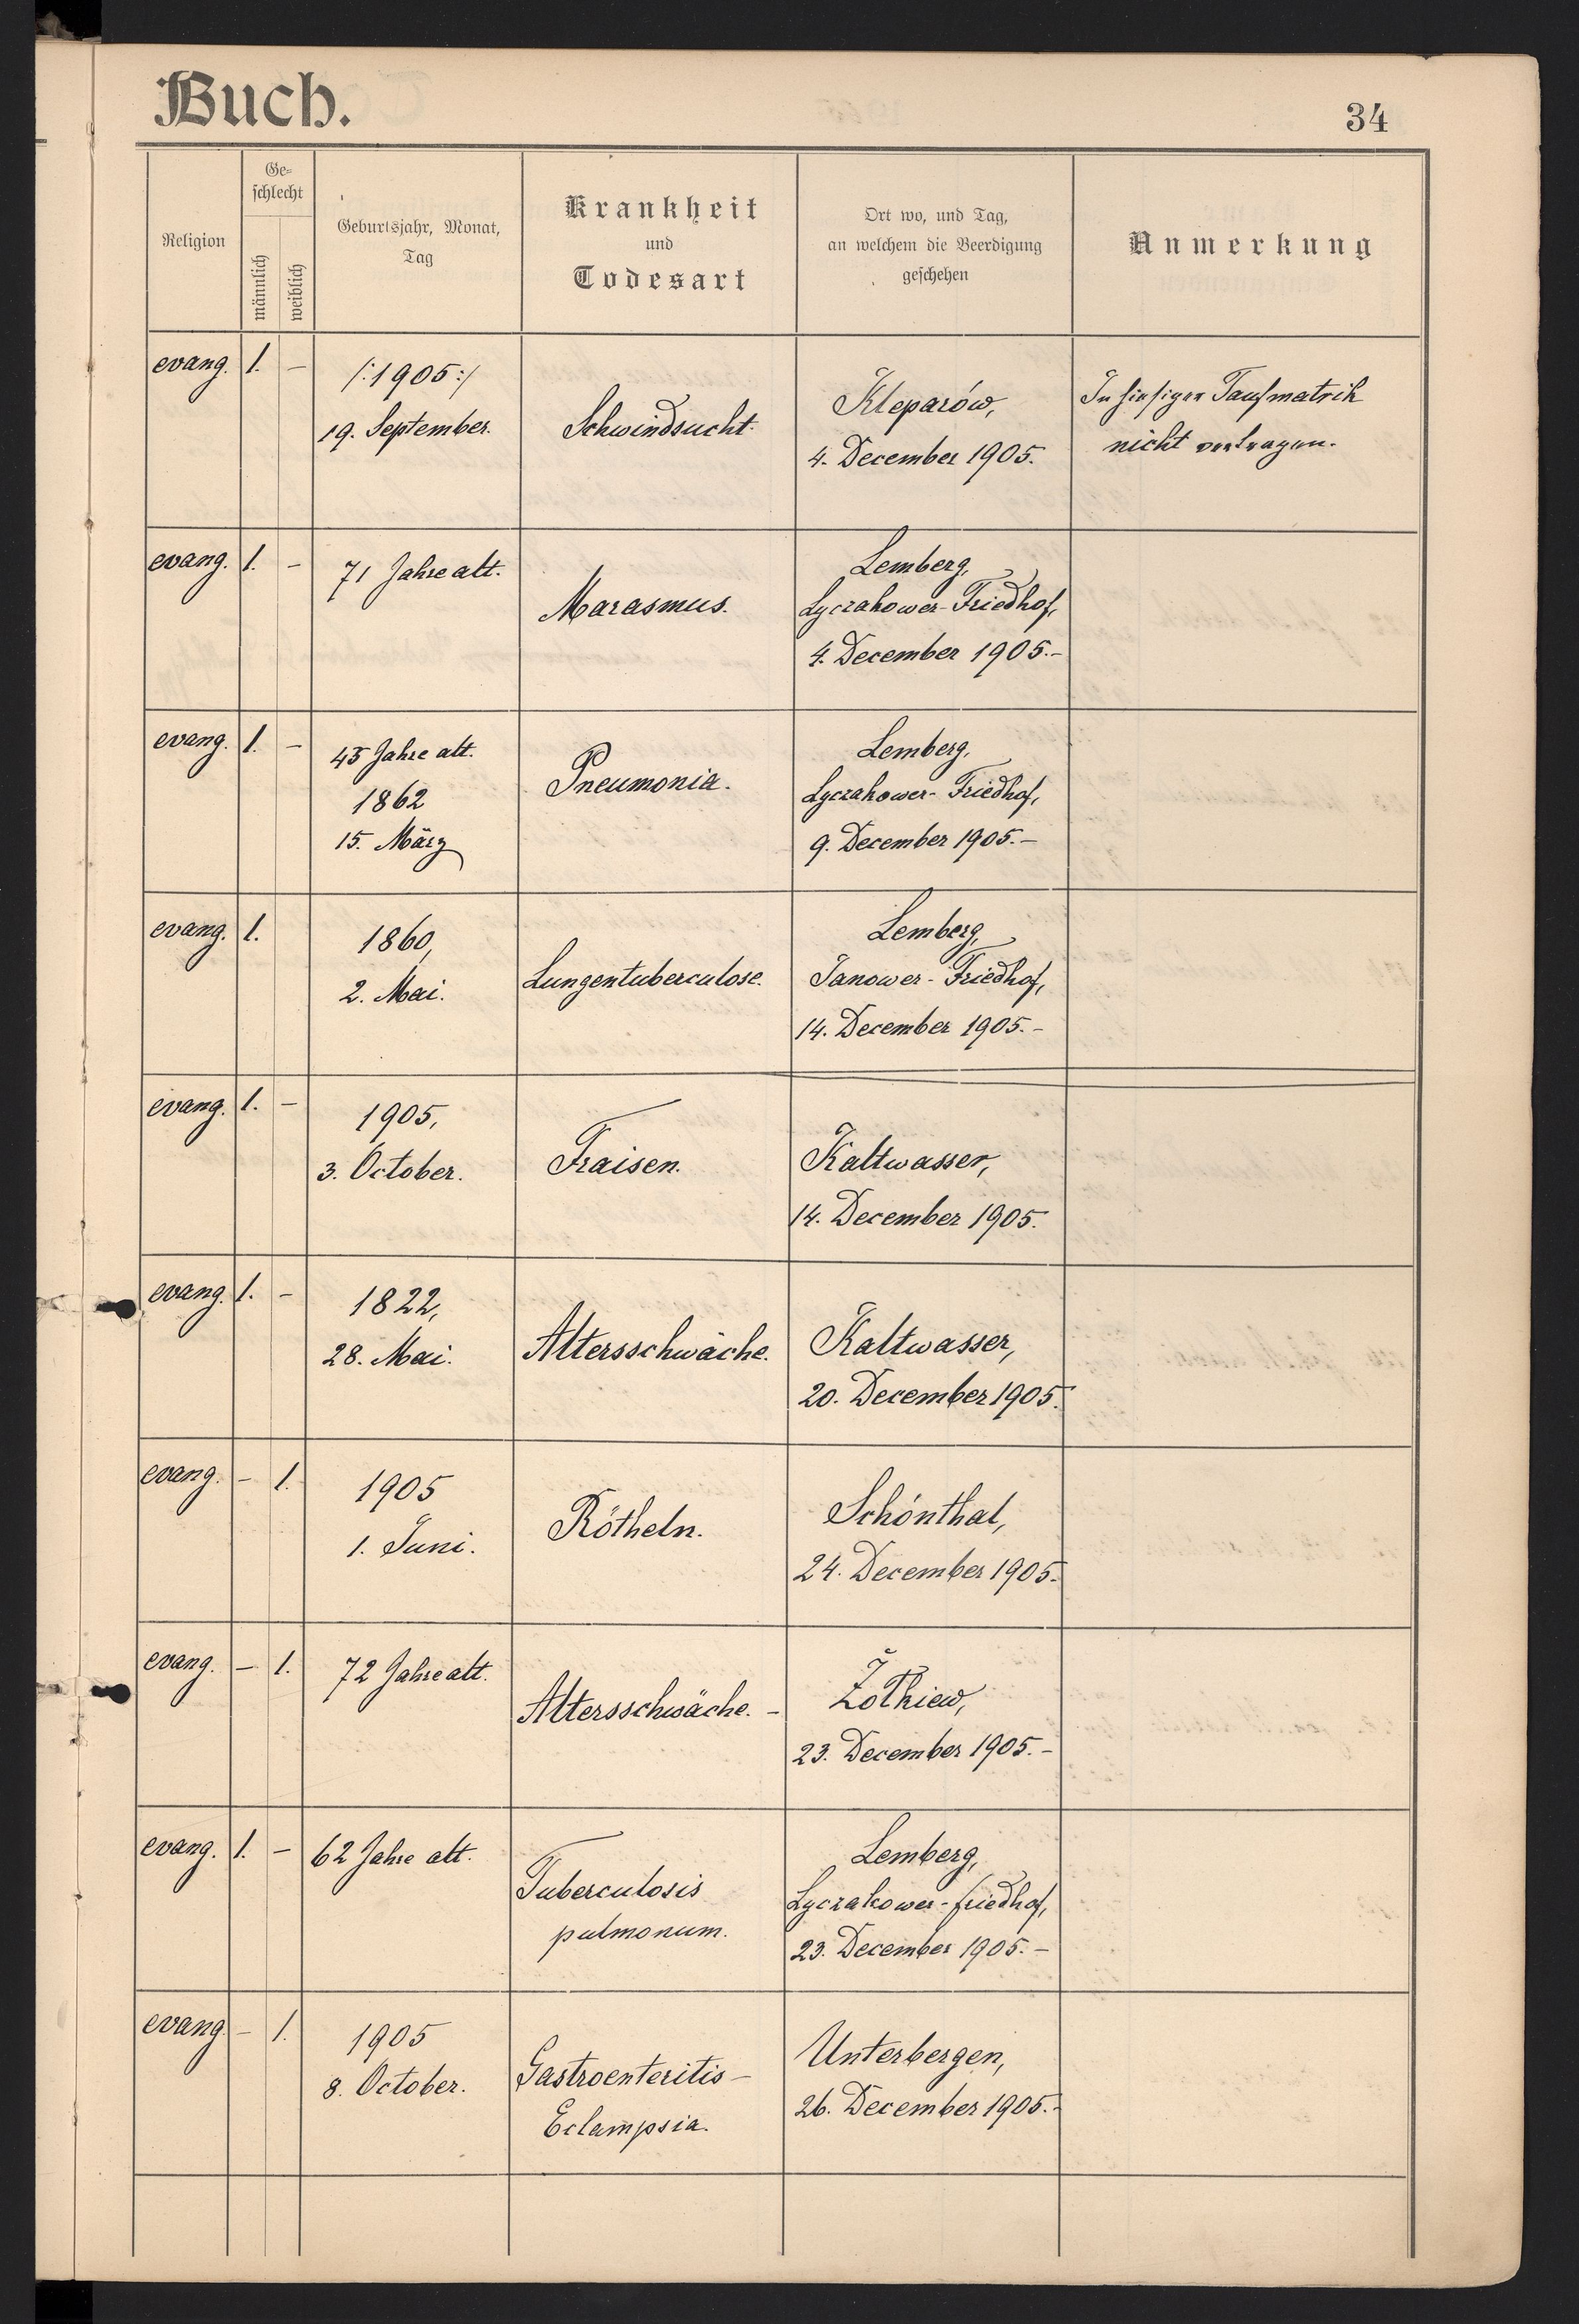 Buch.
34
Religion
Ge-
schlecht
männlich
weiblich
Geburtsjahr, Monat,
Tag
Krankheit
und
Todesart
Ort wo, und Tag,
an welchem die Beerdigung
geschehen
Anmerkung
evang. 1. –
/:1905:/
19. September.
Schwindsucht.
Kleparów,
4. December 1905.
In hiesiger Taufmatrik
nicht vertragen.
evang. 1. –
71 Jahre alt.
Marasmus.
Lemberg,
Lyczakower-Friedhof,
4. December 1905.–
evang. 1. –
43 Jahre alt.
1862
15. März
Pneumonia.
Lemberg,
Lyczakower-Friedhof,
9. December 1905.–
evang. 1.
1860,
2. Mai.
Lungentuberculose.
Lemberg,
Janower-Friedhof,
14. December 1905.–
evang. 1. –
1905,
3. October.
Fraisen.
Kaltwasser,
14. December 1905.
evang. 1. –
1822,
28. Mai.
Altersschwäche.
Kaltwasser,
20. December 1905.
evang. – 1.
1905
1. Juni.
Rötheln.
Schönthal,
24. December 1905.
evang. – 1.
72 Jahre alt.
Altersschwäche. –
Żołkiew,
23. December 1905.–
evang. 1. –
62 Jahre alt.
Tuberculosis
pulmonum.
Lemberg,
Lyczakower-friedhof,
23. December 1905.–
evang. – 1.
1905
8. October.
Gastroenteritis–
Eclampsia.
Unterbergen,
26. December 1905.–